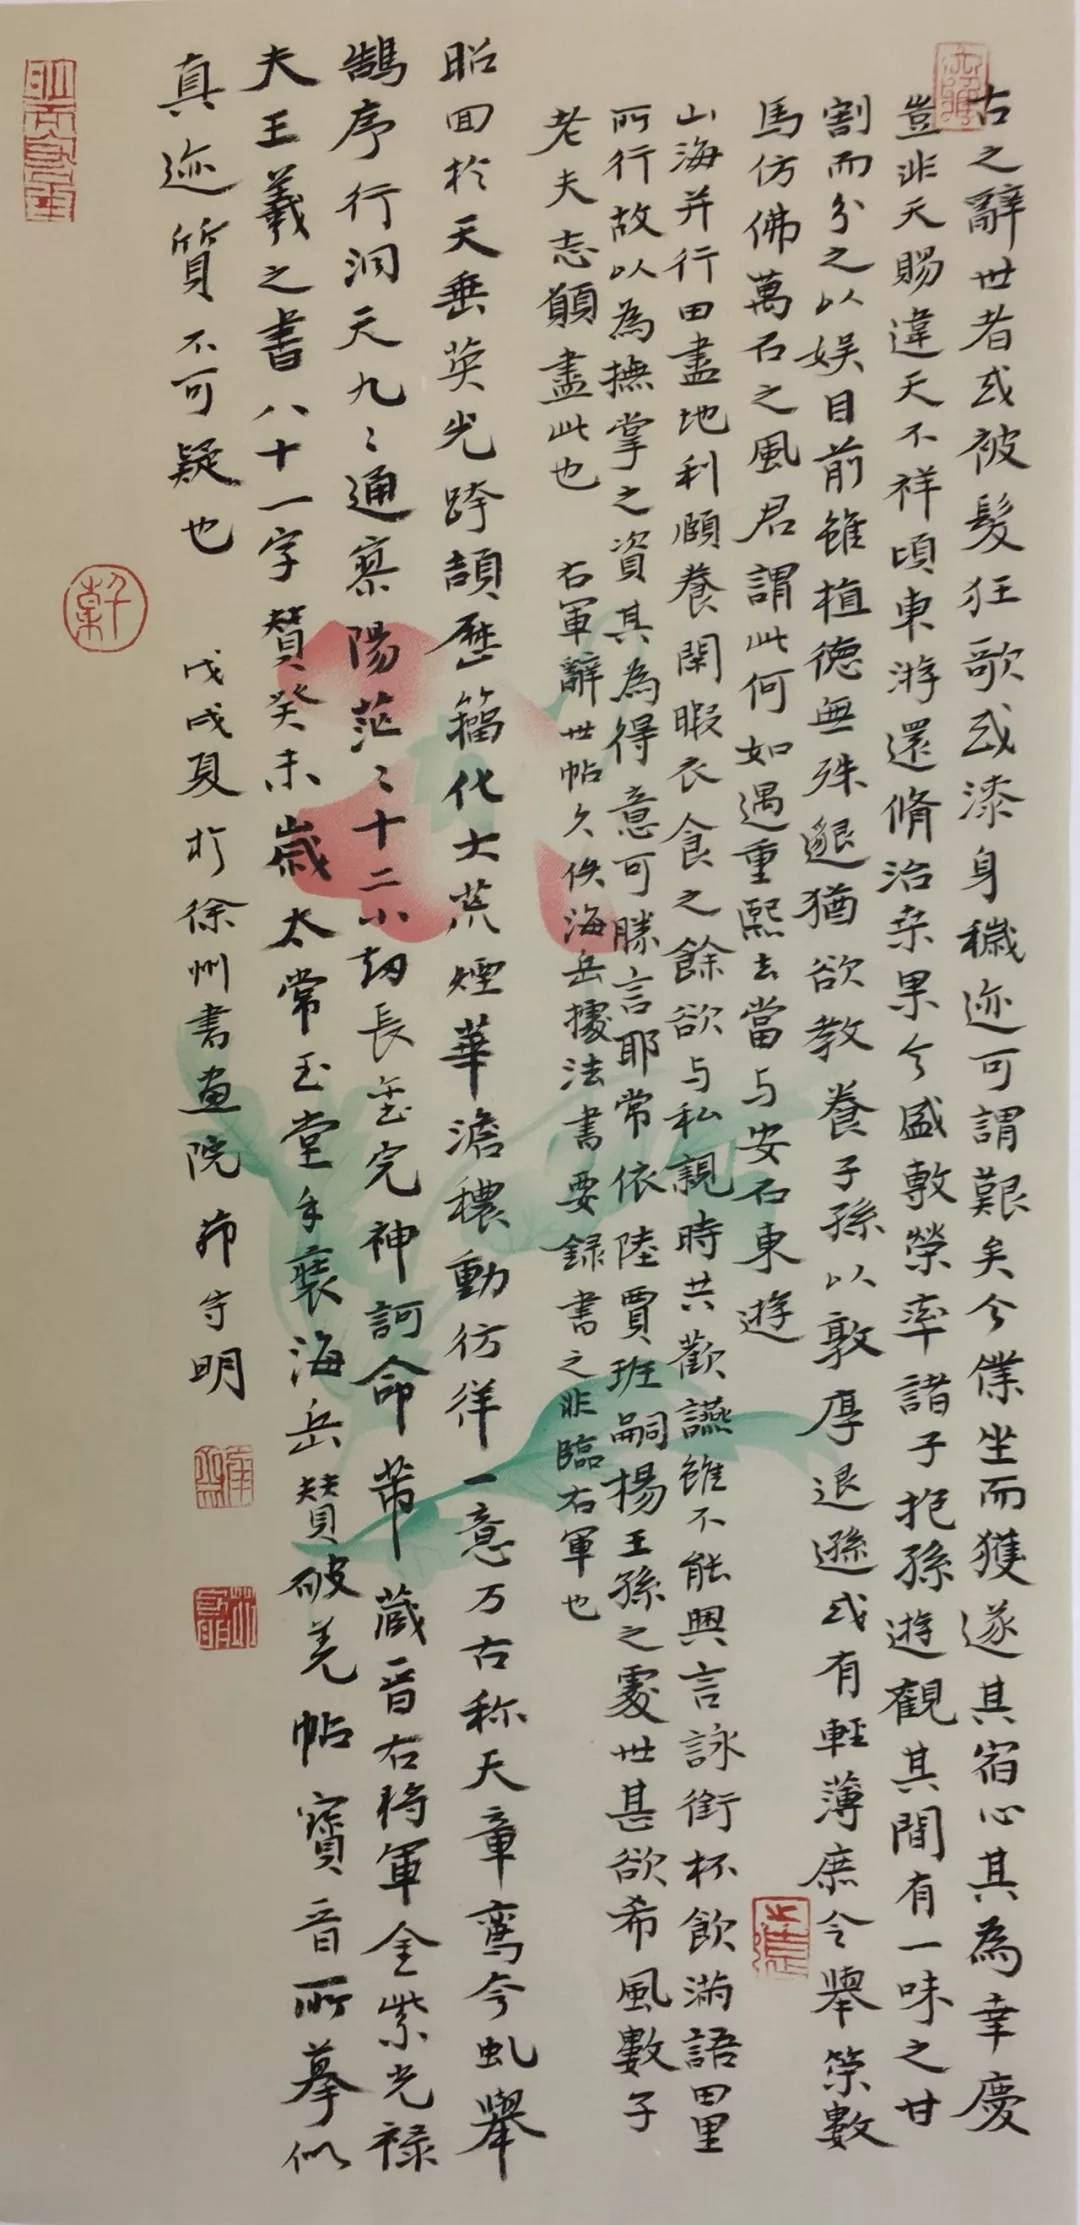 古之辭世者或被髮狂歌或漆身穢迹可謂艱矣今僕坐而獲遂其宿心其為幸慶
豈非天賜違天不祥頃東游還脩治桒果今盛敷榮率諸子抱孫遊觀其間有一味之甘
割而分之以娱目前雖植德無殊邈猶欲教養子孫以敦厚退遜或有輕薄庶令舉策數
馬仿佛萬石之風君謂此何如遇重熙去當与安石東遊
山海并行田盡地利頤養閑暇衣食之餘欲与私親時共歡讌雖不能興言詠銜杯飲滿語田里
所行故以為撫掌之資其為得意可勝言耶常依陸賈班嗣楊王孫之處世甚欲希風數子
老夫志願盡此也
右軍辭世帖久佚海岳據法書要録書之非臨右軍也
昭回於天垂英光跨頡歷籀化大荒煙華澹穠動彷徉一意万古称天章鸞夸虬舉
鵠序行洞天九〻通寮陽茫〻十二小劫長璽完神訶命芾藏晋右将軍金紫光禄
夫王羲之書八十一字賛癸未歲太常玉堂手裝海岳賛破羌帖寳晋所摹似
真迹質不可疑也
戊戌夏於徐州書画院 守明
軒